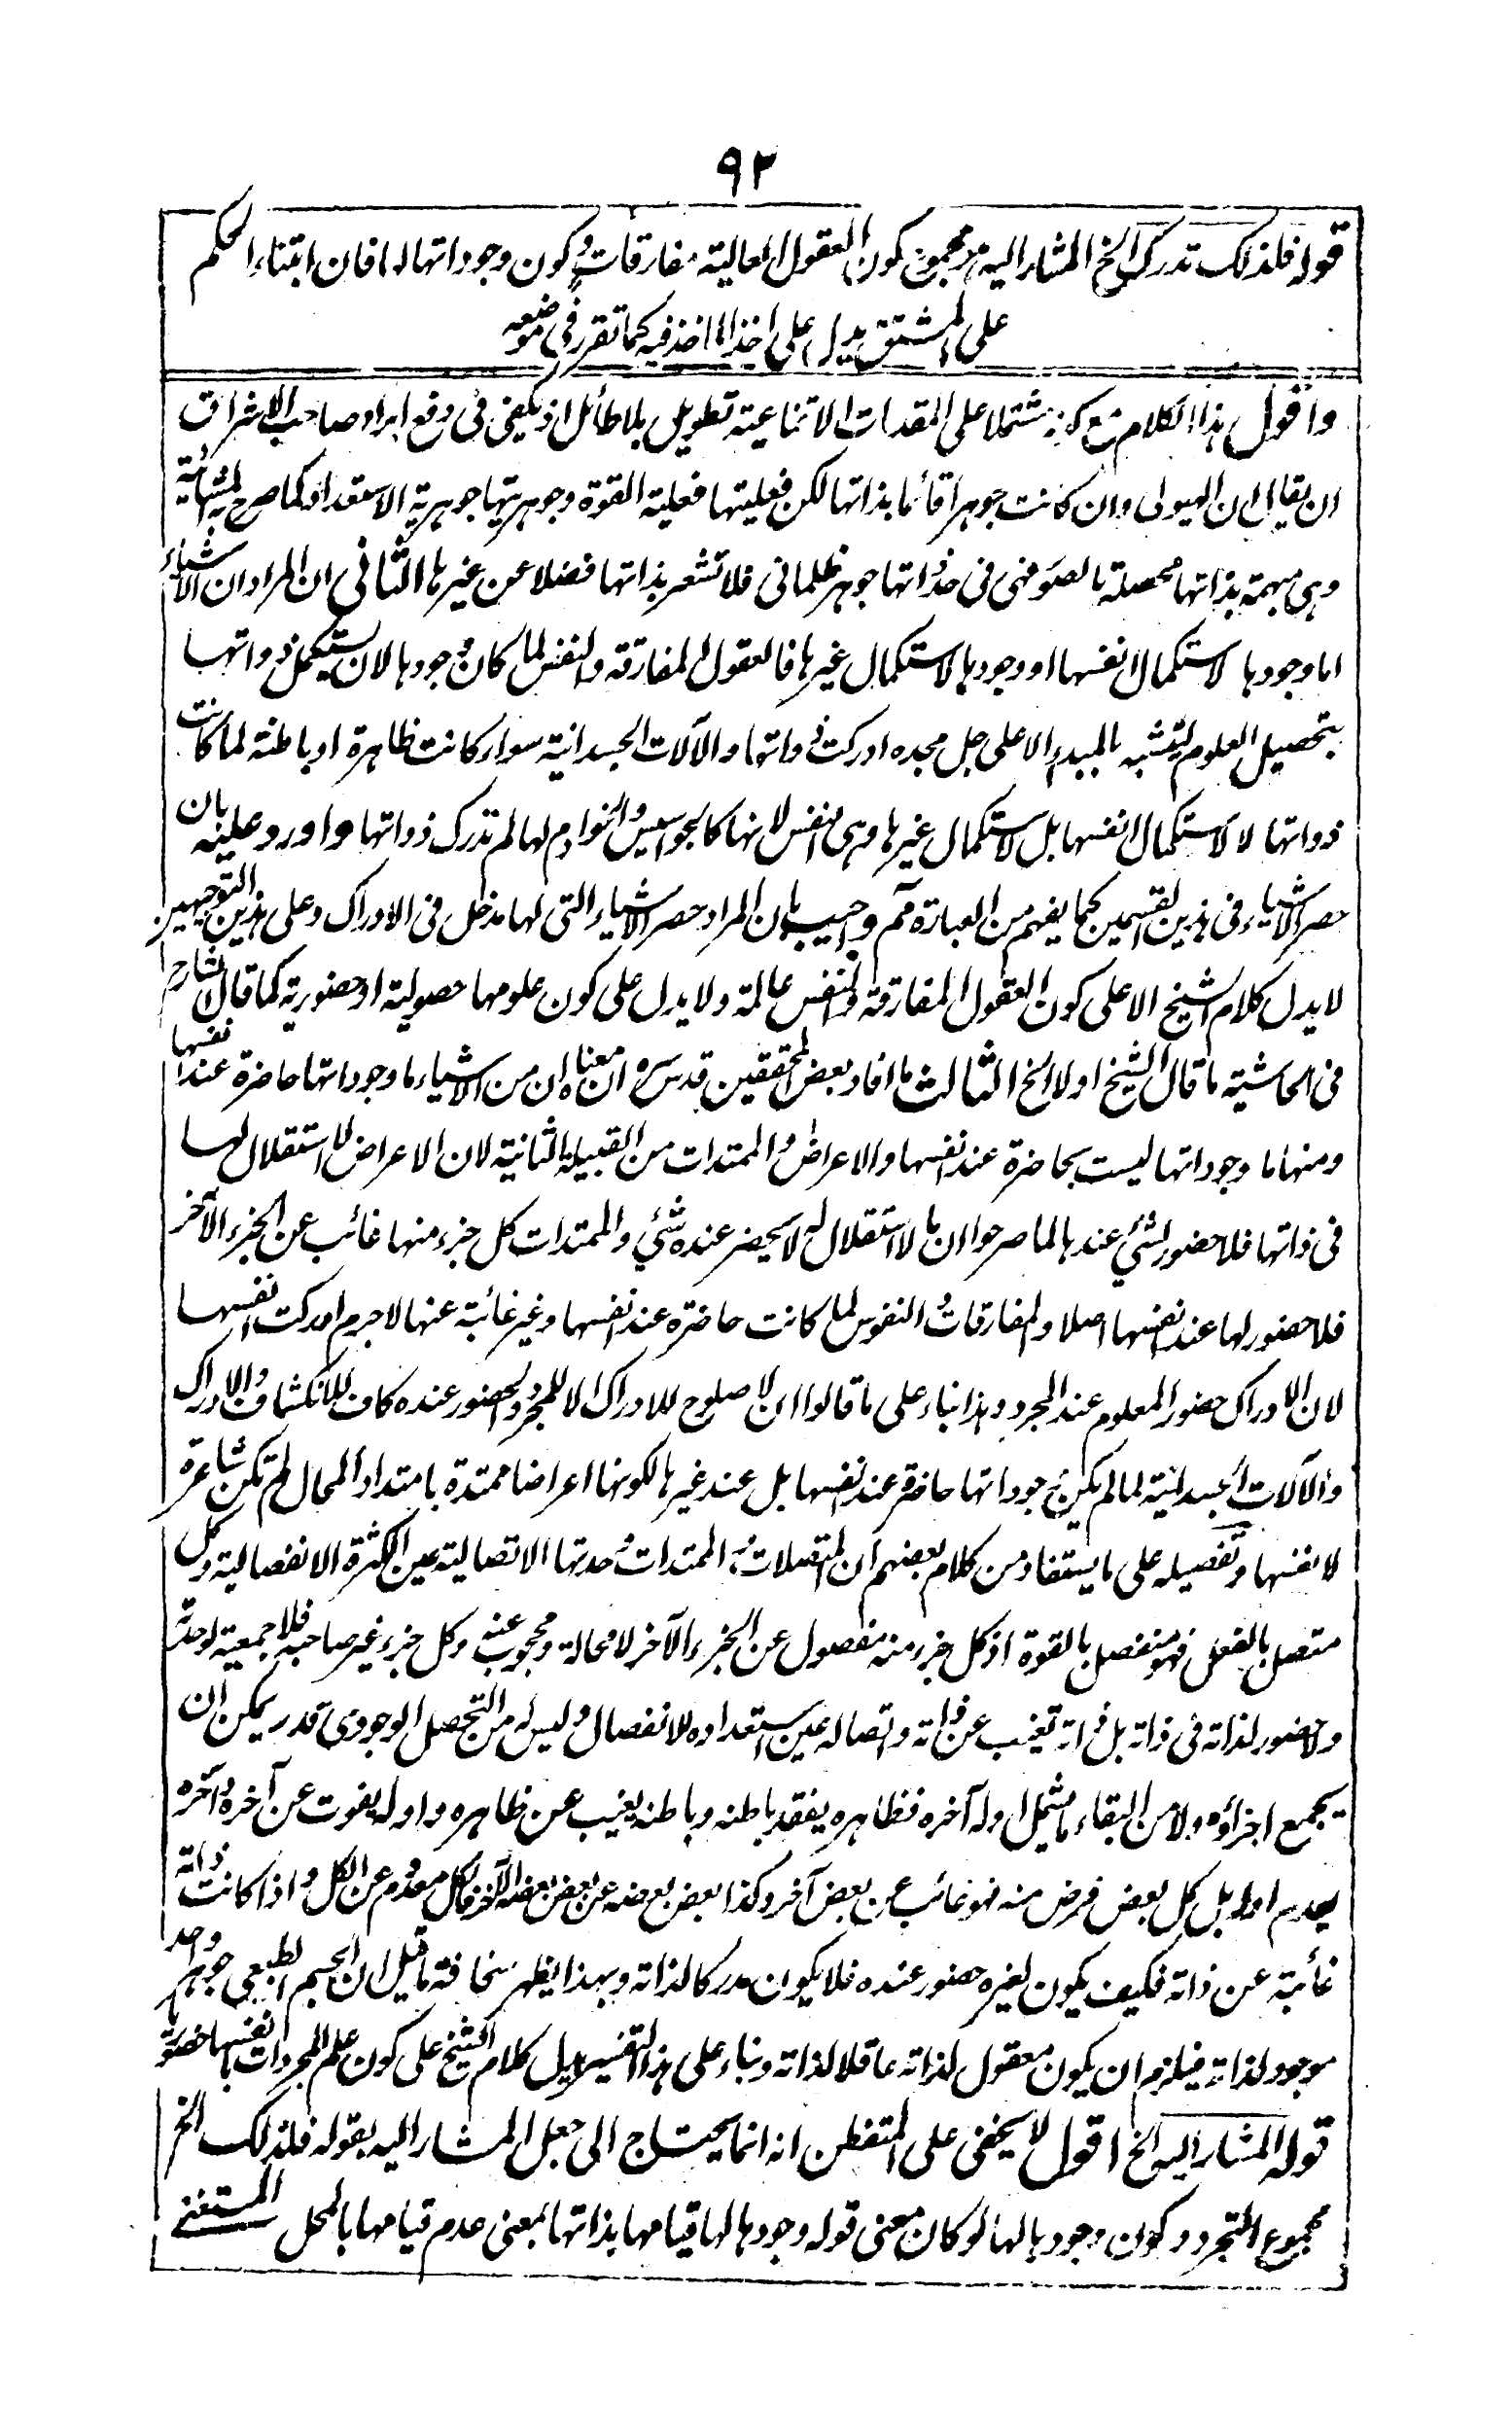 ٩٢
قوله فلذلك تدرك الخ المشار اليه هو مجموع كون العقول العالية مفارقات وكون وجوداتها لها فان ابتناء الحكم
على المشتق يدل على اخذ الماخذ فيه كما تقرر فى موضعه
واقول هذا الكلام مع كونه مشتملا على المقدمات الاقناعية تطويل بلا طائل اذ يكفى فى دفع ايراد صاحب الاشراق
ان يقال ان الهيولى وان كانت جوهرا قائما بذاتها لكن فعليتها فعلية القوة وجوهريتها جوهرية الاستعداد كما صرح به المشائية
وهى مبهمة بذاتها محصلة بالصور فهى فى حد ذاتها جوهر ظلمانى فلا تشعر بذاتها فضلا عن غيرها الثانى ان المراد ان الاشياء
اما وجودها لاستكمال انفسها او وجودها لاستكمال غيرها فالعقول المفارقة والنفس لما كان وجودها لان يستكمل ذواتها
بتحصيل العلوم لتشبه بالمبدء الاعلى جل مجده ادركت ذواتها والآلات الجسدانية سواء كانت ظاهرة او باطنة لما كانت
ذواتها لا لاستكمال انفسها بل لاستكمال غيرها وهى النفس لانها كالجواسيس والخوادم لها لم تدرك ذواتها واورد عليه بان
حصر الاشياء فى هذين القسمين كما يفهم من العبارة مم واجيب بان المراد حصر الاشياء التى لها مدخل فى الادراك وعلى هذين التوجيهين
لا يدل كلام الشيخ الا على كون العقول المفارقة والنفس عالمة ولا يدل على كون علومها حصولية او حضورية كما قال الشارح
فى الحاشية ما قال الشيخ اولا الخ الثالث ما افاد بعض المحققين قدس سره ان معناه ان من الاشياء ما وجوداتها حاضرة عند انفسها
ومنها ما وجوداتها ليست بحاضرة عند انفسها والاعراض والممتدات من القبيلة الثانية لان الاعراض لا استقلال لها
فى ذاتها فلا حضور لشئ عندها لما صرحوا ان ما لا استقلال له لا يحضر عنده شئ والممتدات كل جزء منها غائب عن الجزء الآخر
فلا حضور لها عند انفسها اصلا والمفارقات والنفوس لما كانت حاضرة عند انفسها وغير غائبة عنها لا جرم ادركت انفسها
لان الادراك حضور المعلوم عند المجرد وهذا بناء على ما قالوا ان لا صلوح للادراك الا للمجرد والحضور عنده كاف للانكشاف والادراك
والآلات الجسدانية لما لم يكن وجوداتها حاضرة عند انفسها بل عند غيرها لكونها اعراضا ممتدة بامتداد المحال لم تكن شاعرة
لانفسها وتفصيله على ما يستفاد من كلام بعضهم ان المتصلات الممتدات وحدتها الاتصالية عين الكثرة الانفصالية وكل
متصل بالفعل فهو منفصل بالقوة اذ كل جزء منه مفصول عن الجزء الآخر لا محالة ومحجوب عنه وكل جزء غير صاحبه فلا جمعية لوحدته
ولا حضور لذاته فى ذاته بل ذاته تغيب عن ذاته واتصاله عين استعداده للانفصال وليس له من التحصل الوجودى قدر يمكن ان
يجمع اجزاؤه ولا من البقاء ما يشمل اوله آخره فظاهره يفقد باطنه وباطنه يغيب عن ظاهره واوله يفوت عن آخره وآخره
يعدم اوله بل كل بعض فرض منه فهو غائب عن بعض آخر وكذا بعض بعضه عن بعض بعضه الآخر فالكل معدوم عن الكل واذا كانت ذاته
غائبة عن ذاته فكيف يكون لغيره حضور عنده فلا يكون مدركا لذاته وبهذا يظهر سخافة ما قيل ان الجسم الطبعى جوهر واحد
موجود لذاته فيلزم ان يكون معقول لذاته عاقلا لذاته وبناء على هذا التفسير يدل كلام الشيخ على كون علم المجردات بانفسها حضوريا
قوله المشار اليه الخ اقول لا يخفى على المتفطن انه انما يحتاج الى جعل المشار اليه بقوله فلذلك الخ
مجموع التجرد وكون وجودها لها لو كان معنى قوله وجودها لها قيامها بذاتها بمعنى عدم قيامها بالمحل المستغنى